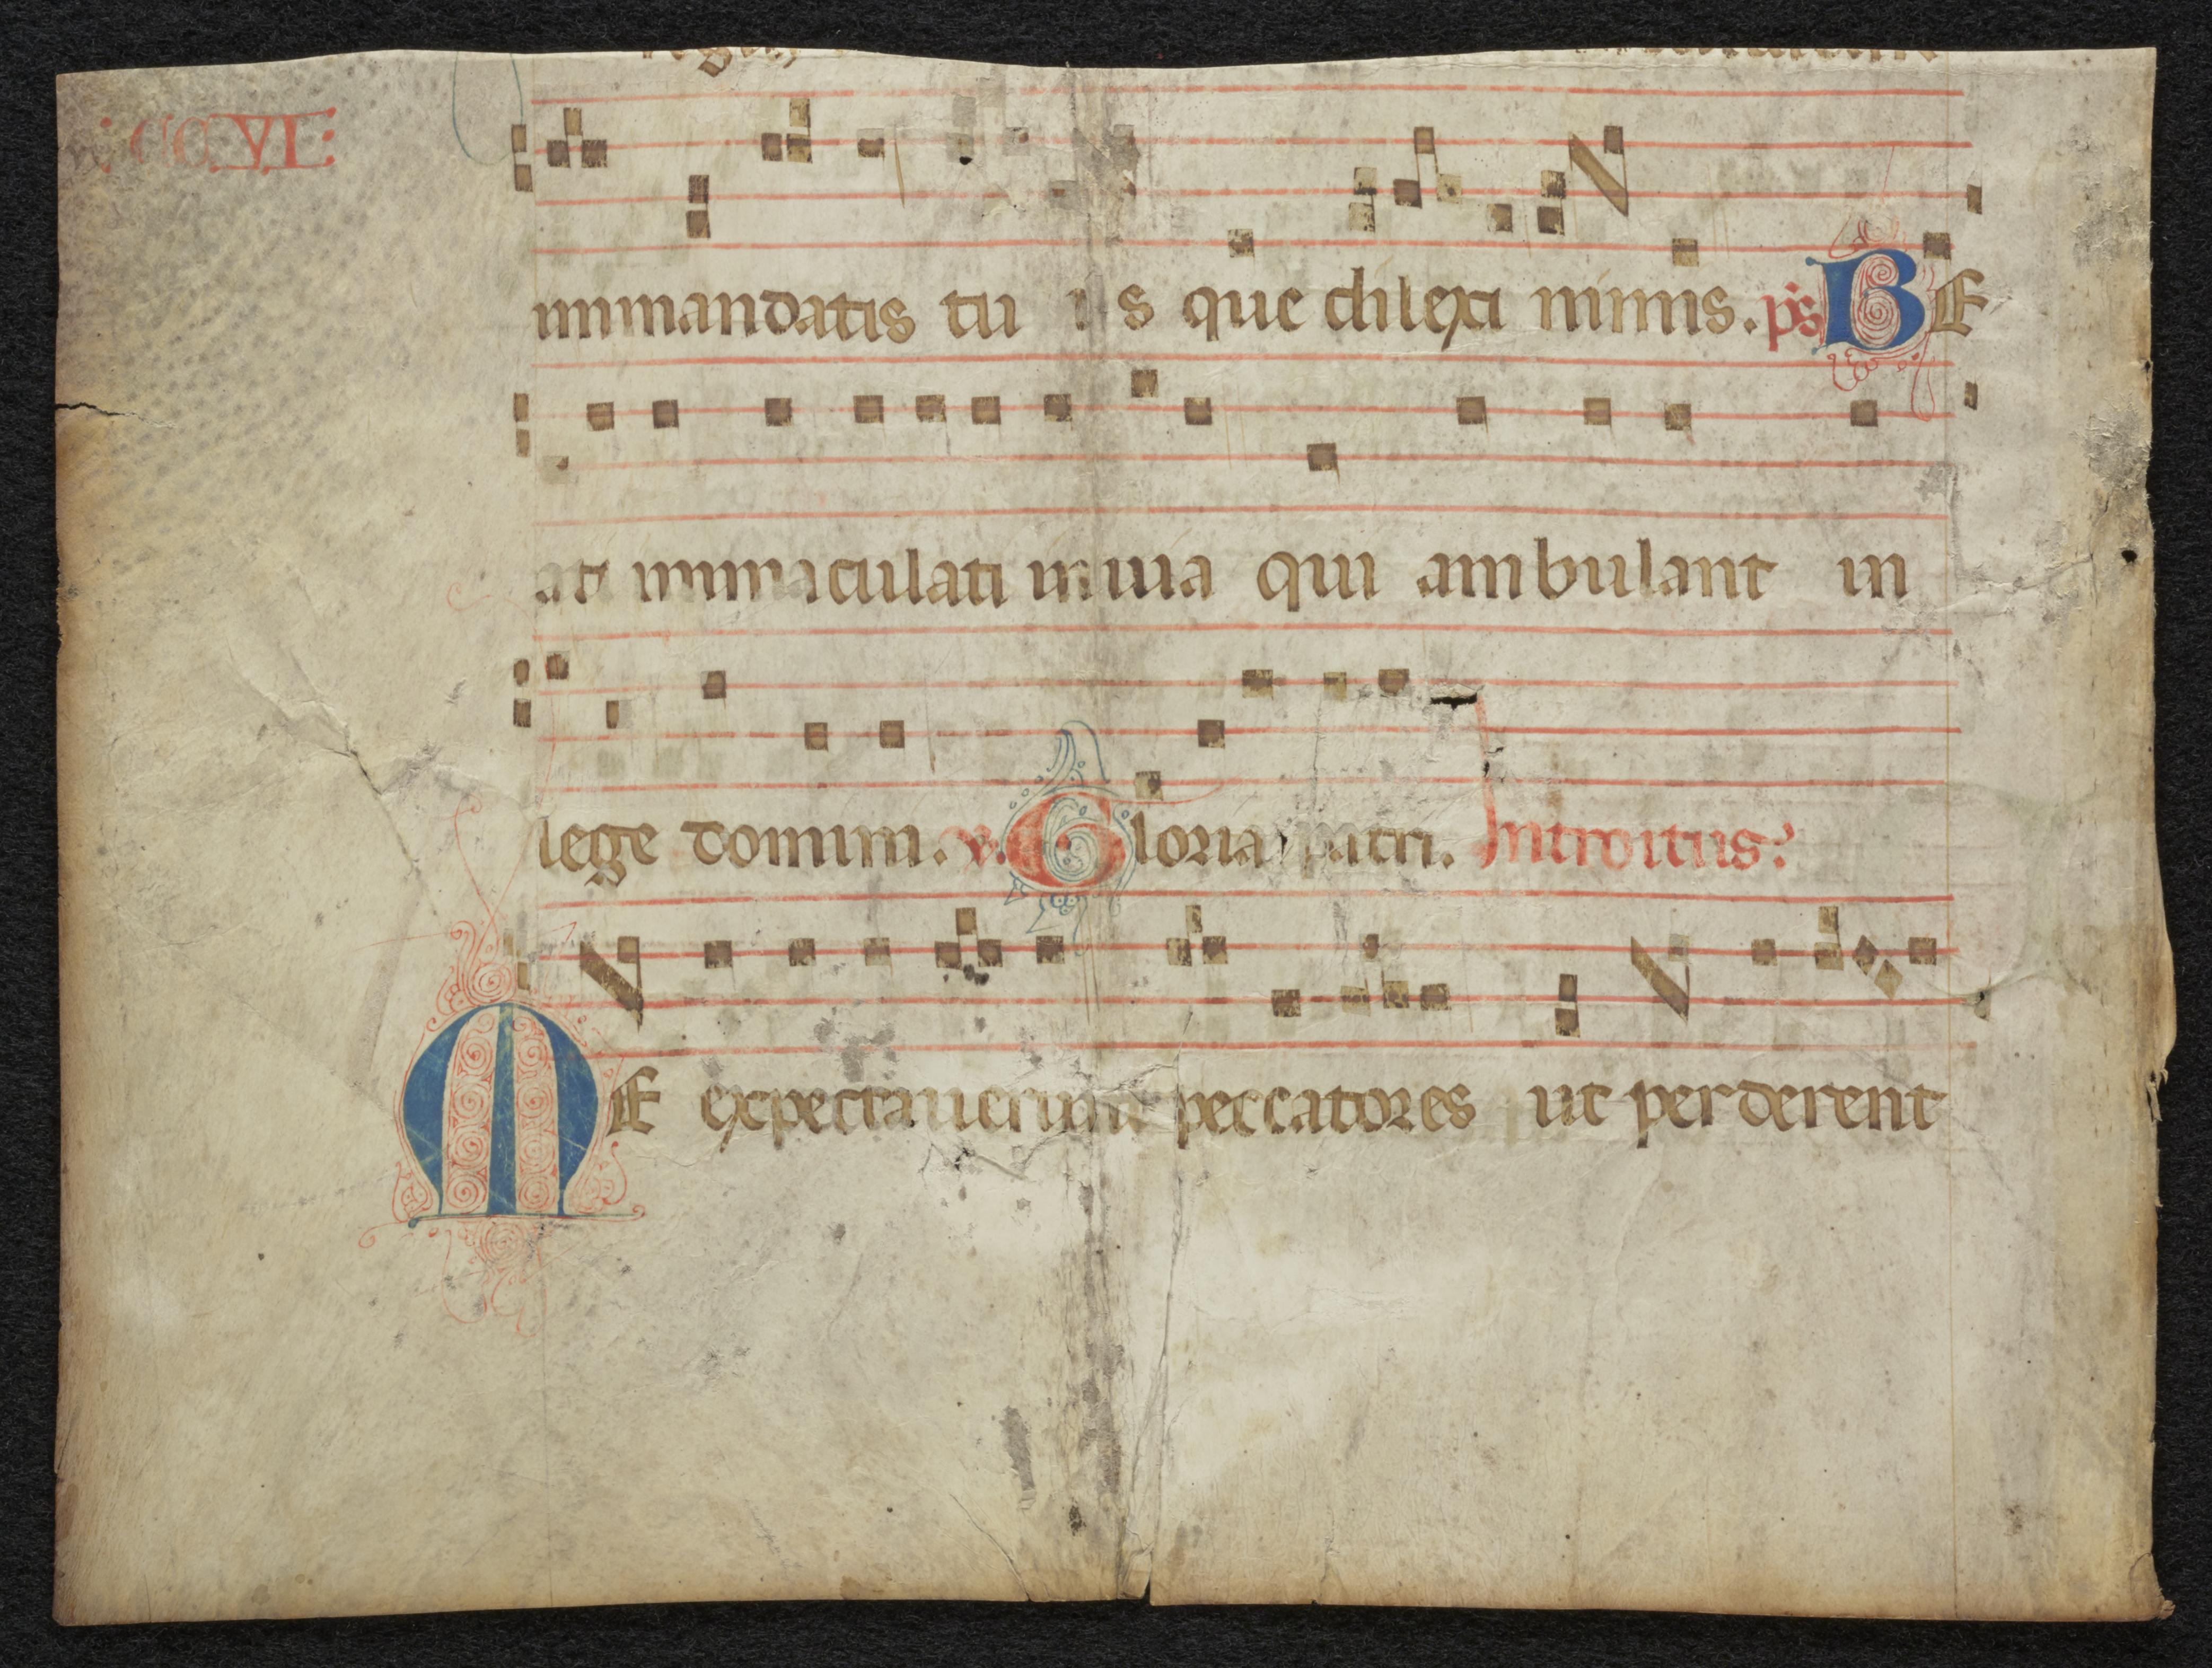 CCVI
in mandatis tuis que dilexi nimis. ps BE
ati immaculati in uia qui ambulant in
lege domini. v. Gloria patri. Introitus.
ME expectauerunt peccatores ut perderent